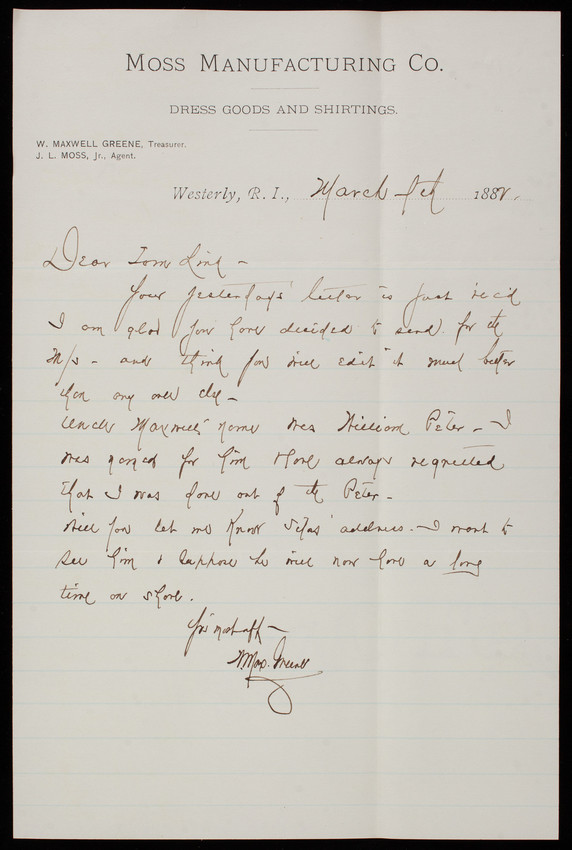 MOSS MANUFACTURING CO.
DRESS GOODS AND SHIRTINGS.
W. MAXWELL GREENE, Treasurer.
J. L. MOSS, Jr., Agent.
Westerly, R. I., March 1882.
Dear Tom Lind -
Your yesterdays' letter is just rec'd
I am glad you have decided to send for the
M/s - and think you will edit it much better
than any one else -
Uncle Maxwells' name was William Peter - I
was named for him & have always regretted
that I was done out of the Peter -
Will you let me know Silas' address - I want to
see him & suppose he will now have a long
time on shore.
Yrs most aff -
W Max. Greene